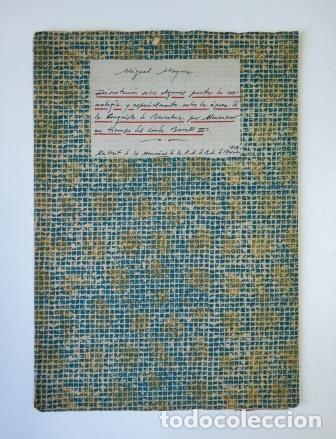 Miguel Mayora
Disertación sobre algunos puntos de cro-
nología y especialmente sobre la época de
la Conquista de Barcelona por Almanzor
en tiempo del conde Borrell II
de las Memorias de la R.A. de B.L. de Barna
todocoleccion
todocoleccion